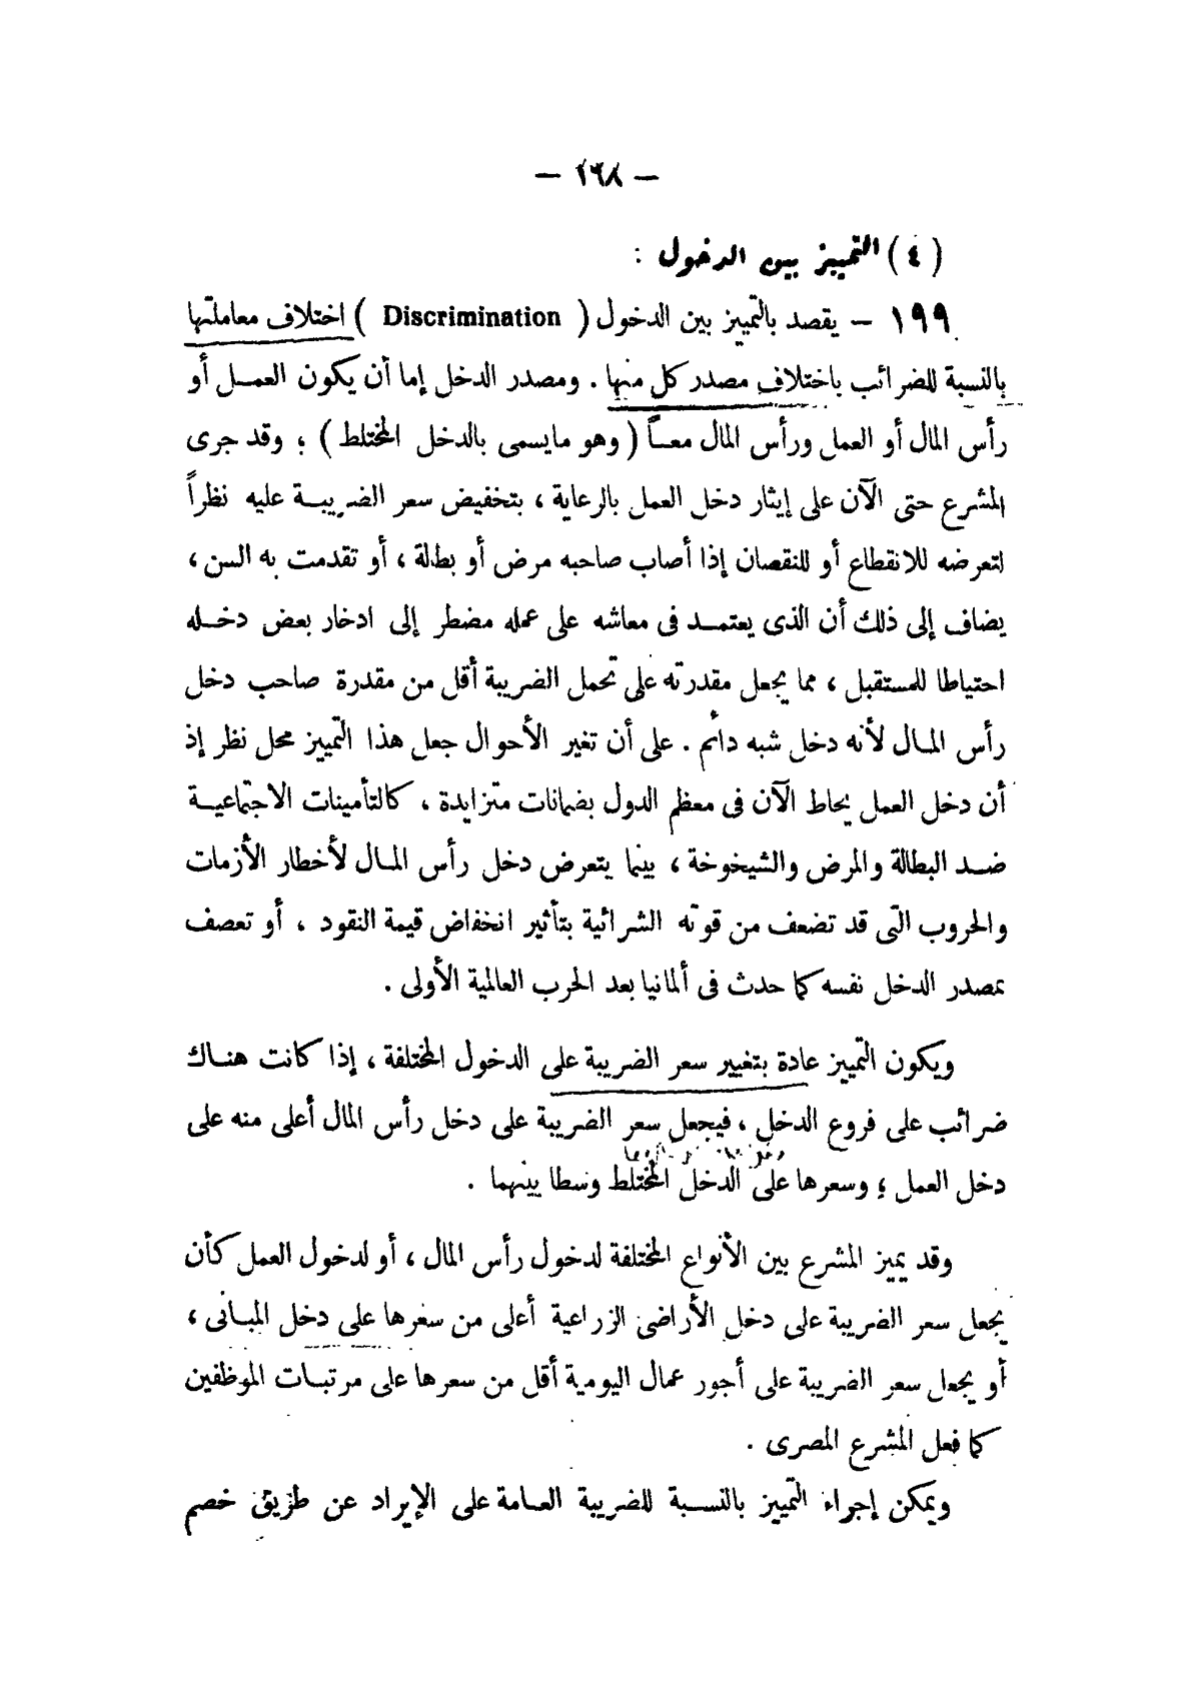 — ٢٦٨ —
( ٤ ) التمييز بين الدخول :
١٩٩ — يقصد بالتمييز بين الدخول ( Discrimination ) اختلاف معاملتها
بالنسبة للضرائب باختلاف مصدر كل منها . ومصدر الدخل إما أن يكون العمــل أو
رأس المال أو العمل ورأس المال معــاً ( وهو مايسمى بالدخل المختلط ) ؛ وقد جرى
المشرع حتى الآن على إيثار دخل العمل بالرعاية ، بتخفيض سعر الضريبــة عليه نظراً
لتعرضه للانقطاع أو للنقصان إذا أصاب صاحبه مرض أو بطالة ، أو تقدمت به السن ،
يضاف إلى ذلك أن الذى يعتمــد فى معاشه على عمله مضطر إلى ادخار بعض دخــله
احتياطا للمستقبل ، مما يجعل مقدرته على تحمل الضريبة أقل من مقدرة صاحب دخل
رأس المــال لأنه دخل شبه دائم . على أن تغير الأحوال جعل هذا التمييز محل نظر إذ
أن دخل العمل يحاط الآن فى معظم الدول بضمانات متزايدة ، كالتأمينات الاجتماعيــة
ضــد البطالة والمرض والشيخوخة ، بينما يتعرض دخل رأس المــال لأخطار الأزمات
والحروب التى قد تضعف من قوته الشرائية بتأثير انخفاض قيمة النقود ، أو تعصف
بمصدر الدخل نفسه كما حدث فى ألمانيا بعد الحرب العالمية الأولى .
ويكون التمييز عادة بتغيير سعر الضريبة على الدخول المختلفة ، إذا كانت هنــاك
ضرائب على فروع الدخل ، فيجعل سعر الضريبة على دخل رأس المال أعلى منه على
دخل العمل ؛ وسعرها على الدخل المختلط وسطا بينهما .
وقد يميز المشرع بين الأنواع المختلفة لدخول رأس المال ، أو لدخول العمل كأن
يجعل سعر الضريبة على دخل الأراضى الزراعية أعلى من سعرها على دخل المبــانى ،
أو يجعل سعر الضريبة على أجور عمال اليومية أقل من سعرها على مرتبــات الموظفين
كما فعل المشرع المصرى .
ويمكن إجراء التمييز بالنســبة للضريبة العــامة على الإيراد عن طريق خصم